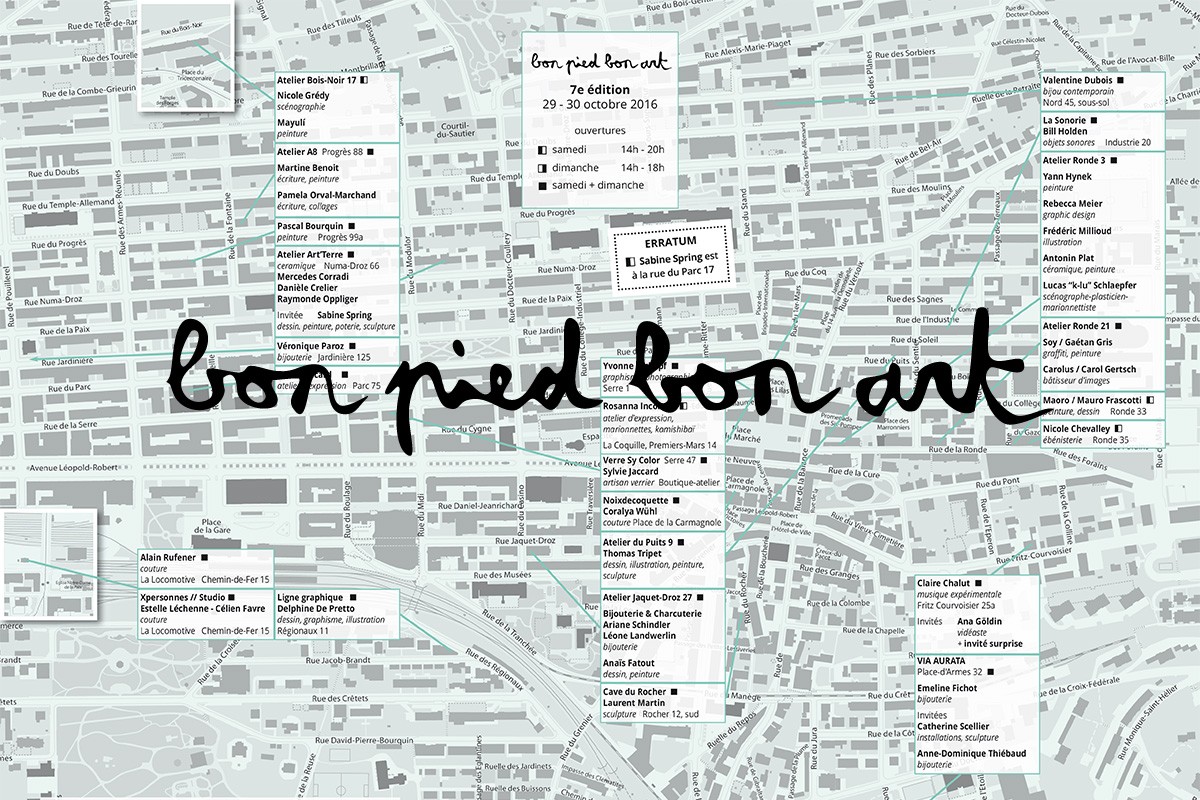 bon pied bon art
7e édition
29 - 30 octobre 2016
ouvertures
samedi 14h - 20h
dimanche 14h - 18h
samedi + dimanche
ERRATUM
Sabine Spring est
à la rue du Parc 17
bon pied bon art
Atelier Bois-Noir 17
Nicole Grédy
scénographie
Mayulí
peinture
Atelier A8 Progrès 88
Martine Benoit
écriture, peinture
Pamela Orval-Marchand
écriture, collages
Pascal Bourquin
peinture Progrès 99a
Atelier Art'Terre
ceramique Numa-Droz 66
Mercedes Corradi
Danièle Crelier
Raymonde Oppliger
Invitée Sabine Spring
dessin, peinture, poterie, sculpture
Véronique Paroz
bijouterie Jardinière 125
Parc 75
Alain Rufener
couture
La Locomotive Chemin-de-Fer 15
Xpersonnes // Studio
Estelle Léchenne - Célien Favre
couture
La Locomotive Chemin-de-Fer 15
Ligne graphique
Delphine De Pretto
dessin, graphisme, illustration
Régionaux 11
Yvonne
Serre 1
Rosanna
atelier d'expression,
marionnettes, kamishibai
La Coquille, Premiers-Mars 14
Verre Sy Color Serre 47
Sylvie Jaccard
artisan verrier Boutique-atelier
Noixdecoquette
Coralya Wühl
couture Place de la Carmagnole
Atelier du Puits 9
Thomas Tripet
dessin, illustration, peinture,
sculpture
Atelier Jaquet-Droz 27
Bijouterie & Charcuterie
Ariane Schindler
Léone Landwerlin
bijouterie
Anaïs Fatout
dessin, peinture
Cave du Rocher
Laurent Martin
sculpture Rocher 12, sud
Valentine Dubois
bijou contemporain
Nord 45, sous-sol
La Sonorie
Bill Holden
objets sonores Industrie 20
Atelier Ronde 3
Yann Hynek
peinture
Rebecca Meier
graphic design
Frédéric Millioud
illustration
Antonin Plat
céramique, peinture
Lucas “k-lu” Schlaepfer
scénographe-plasticien-
marionnettiste
Atelier Ronde 21
Soy / Gaétan Gris
graffiti, peinture
Carolus / Carol Gertsch
bâtisseur d'images
Maoro / Mauro Frascotti
peinture, dessin Ronde 33
Nicole Chevalley
ébénisterie Ronde 35
Claire Chalut
musique expérimentale
Fritz Courvoisier 25a
Invités Ana Göldin
vidéaste
+ invité surprise
VIA AURATA
Place-d'Armes 32
Emeline Fichot
bijouterie
Invitées
Catherine Scellier
installations, sculpture
Anne-Dominique Thiébaud
bijouterie
Rue du Bois-Noir
Place du
Tricentenaire
Rue des Tilleuls
Rue de la Combe-Grieurin
Rue du Doubs
Rue du Temple-Allemand
Rue du Progrès
Rue Numa-Droz
Rue de la Paix
Rue Jardinière
Rue du Parc
Rue de la Serre
Avenue Léopold-Robert
Rue des Armes-Réunies
Rue de la Fontaine
Rue du Modulor
Rue du Docteur-Coullery
Courtil-
du-Sautier
Rue Alexis-Marie-Piaget
Rue des Sorbiers
Rue Célestin-Nicolet
Rue de l'Avocat-Bille
Rue de Bel-Air
Rue des Moulins
Rue du Stand
Rue du Progrès
Rue Numa-Droz
Rue de la Paix
Rue du Coq
Rue du Versoix
Rue des Sagnes
Rue de l'Industrie
Rue du Soleil
Rue du Cygne
Place
de la Gare
Rue du Roulage
Rue du Midi
Rue du Casino
Rue Daniel-Jeanrichard
Rue Jaquet-Droz
Rue des Musées
Rue de la Tranchée
Rue des Régionaux
Rue Jacob-Brandt
Rue des Crêtets
Rue David-Pierre-Bourquin
Rue de la Reuse
Rue du Grenier
Ruelle des Jardinets
Ruelle des Buissons
Impasse des Clématites
Ruelle du Repos
Rue du Jura
Rue de la Balance
Rue du Vieux-Cimetière
Rue des Granges
Rue de la Colombe
Rue de la Chapelle
Rue de la Cure
Rue du Pont
Rue de l'Eperon
Rue de la Ronde
Rue des Forains
Rue de la Colline
Rue Fritz-Courvoisier
Rue de la Croix-Fédérale
Rue Monique-Saint-Hélier